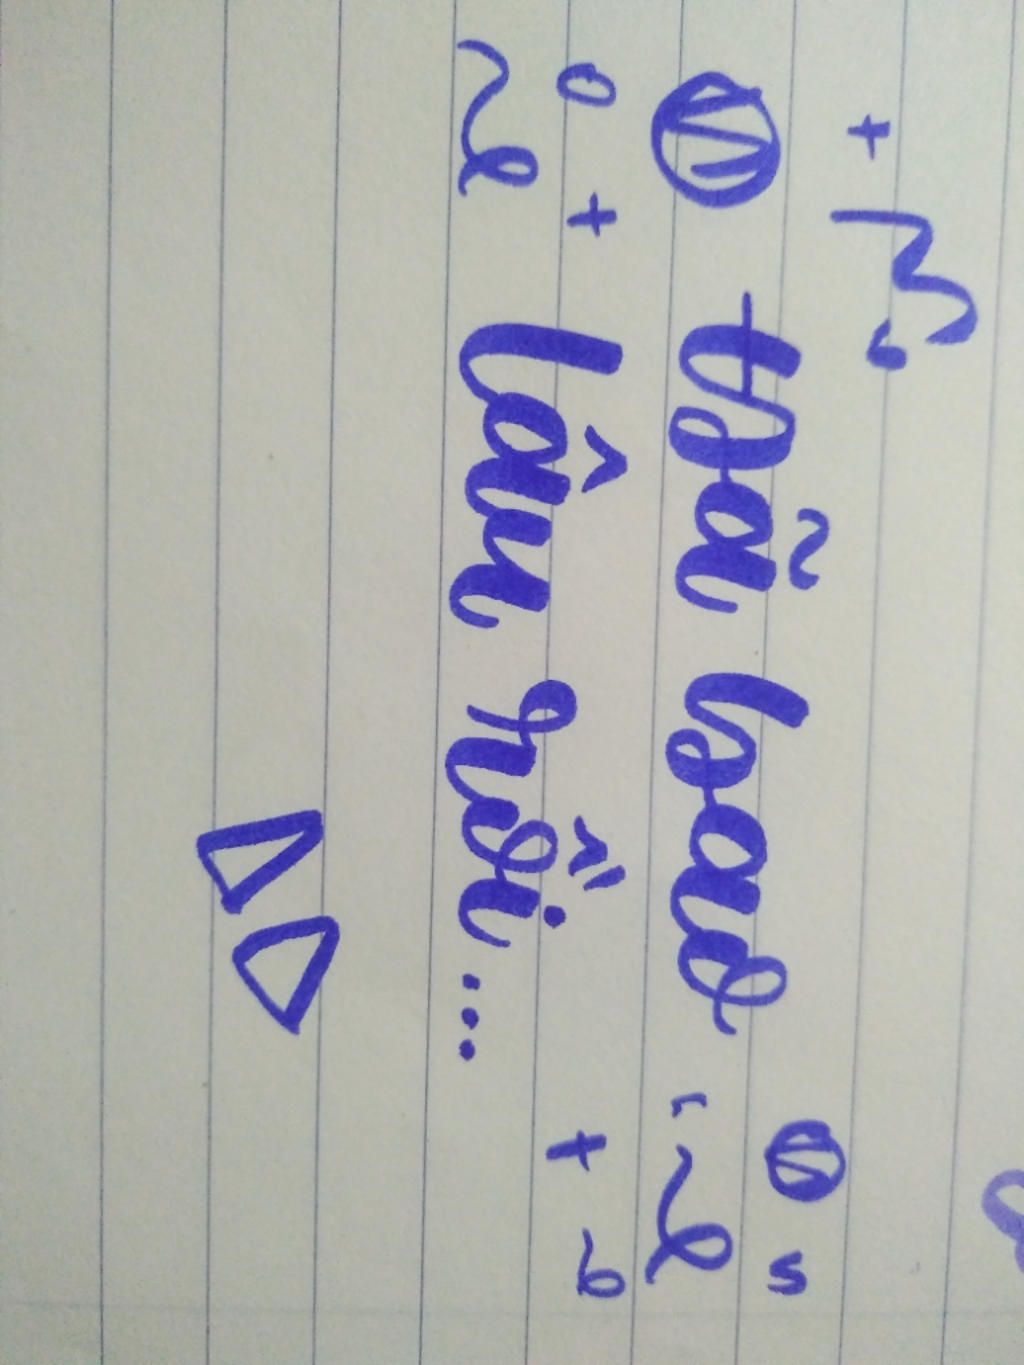 Đã bao
lâu rồi...